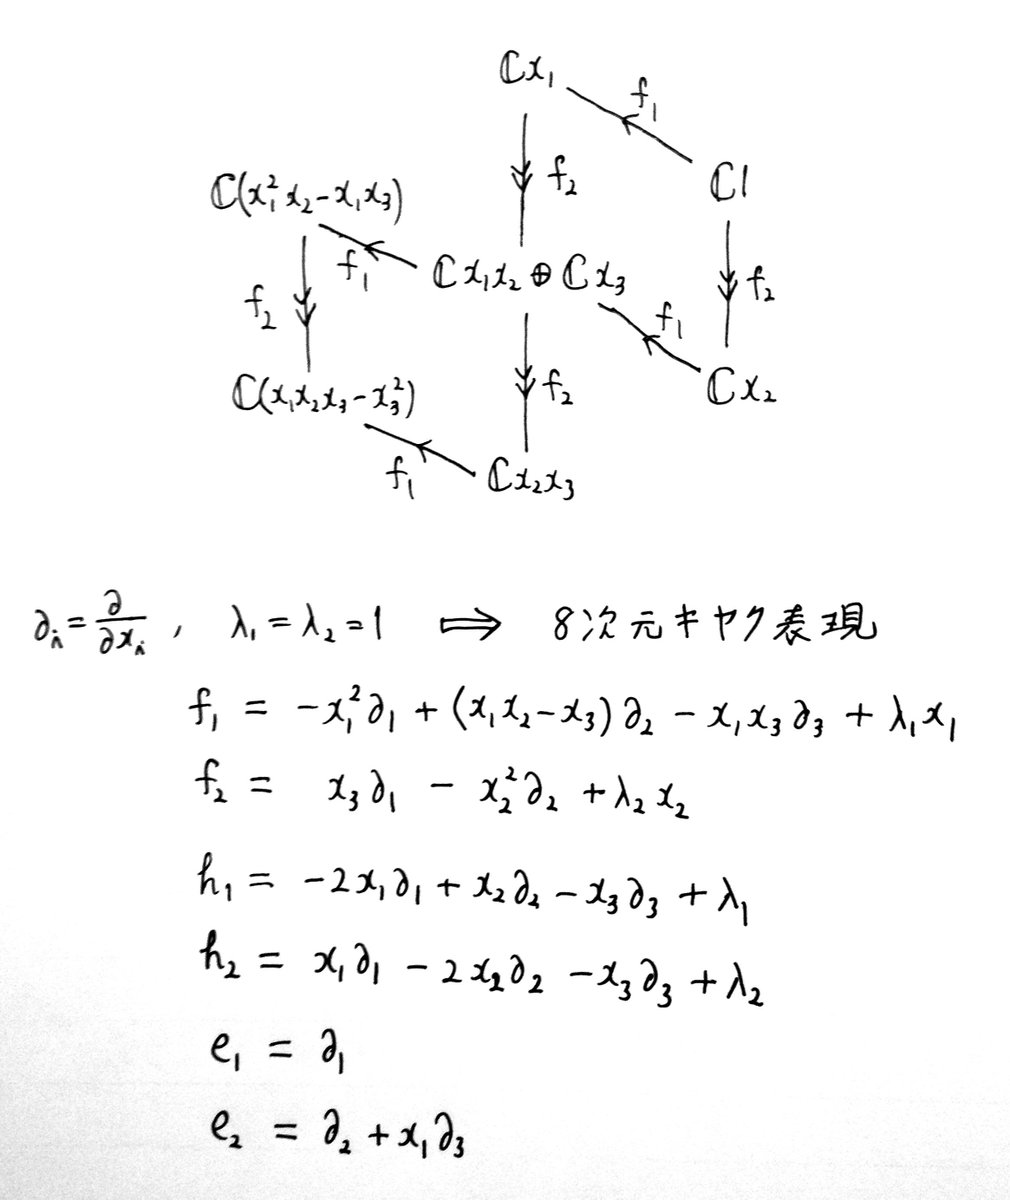 ℂx₁
f₁
f₂
ℂ1
ℂ(x₁²x₂-x₁x₃)
f₁
ℂx₁x₂⊕ℂx₃
f₂
f₂
f₁
ℂ(x₁x₂x₃-x₃²)
f₂
ℂx₂
f₁
ℂx₂x₃
∂ᵢ = ∂/∂xᵢ , λ₁ = λ₂ = 1 ⟹ 8次元キヤク表現
f₁ = -x₁²∂₁ + (x₁x₂-x₃)∂₂ - x₁x₃∂₃ + λ₁x₁
f₂ = x₃∂₁ - x₂²∂₂ + λ₂x₂
h₁ = -2x₁∂₁ + x₂∂₂ - x₃∂₃ + λ₁
h₂ = x₁∂₁ - 2x₂∂₂ - x₃∂₃ + λ₂
e₁ = ∂₁
e₂ = ∂₂ + x₁∂₃